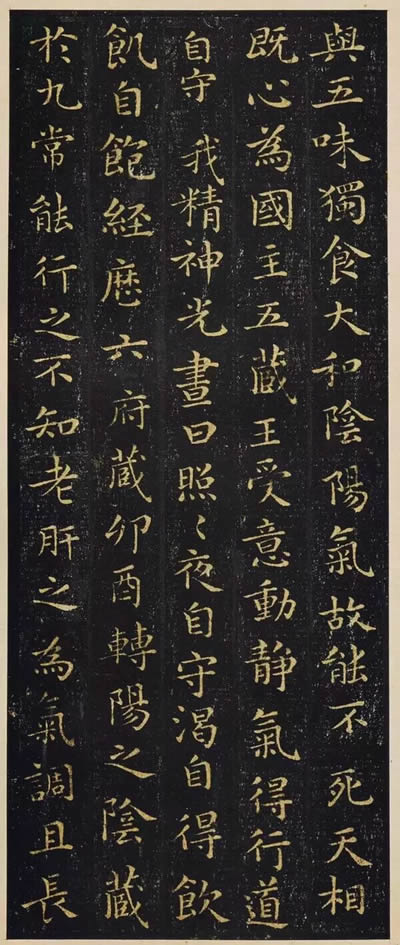 與五味獨食大和陰陽氣故能不死天相
既心為國主五藏王受意動靜氣得行道
自守我精神光晝日照〻夜自守渴自得飲
飢自飽經歷六府藏卯酉轉陽之陰藏
於九常能行之不知老肝之為氣調且長